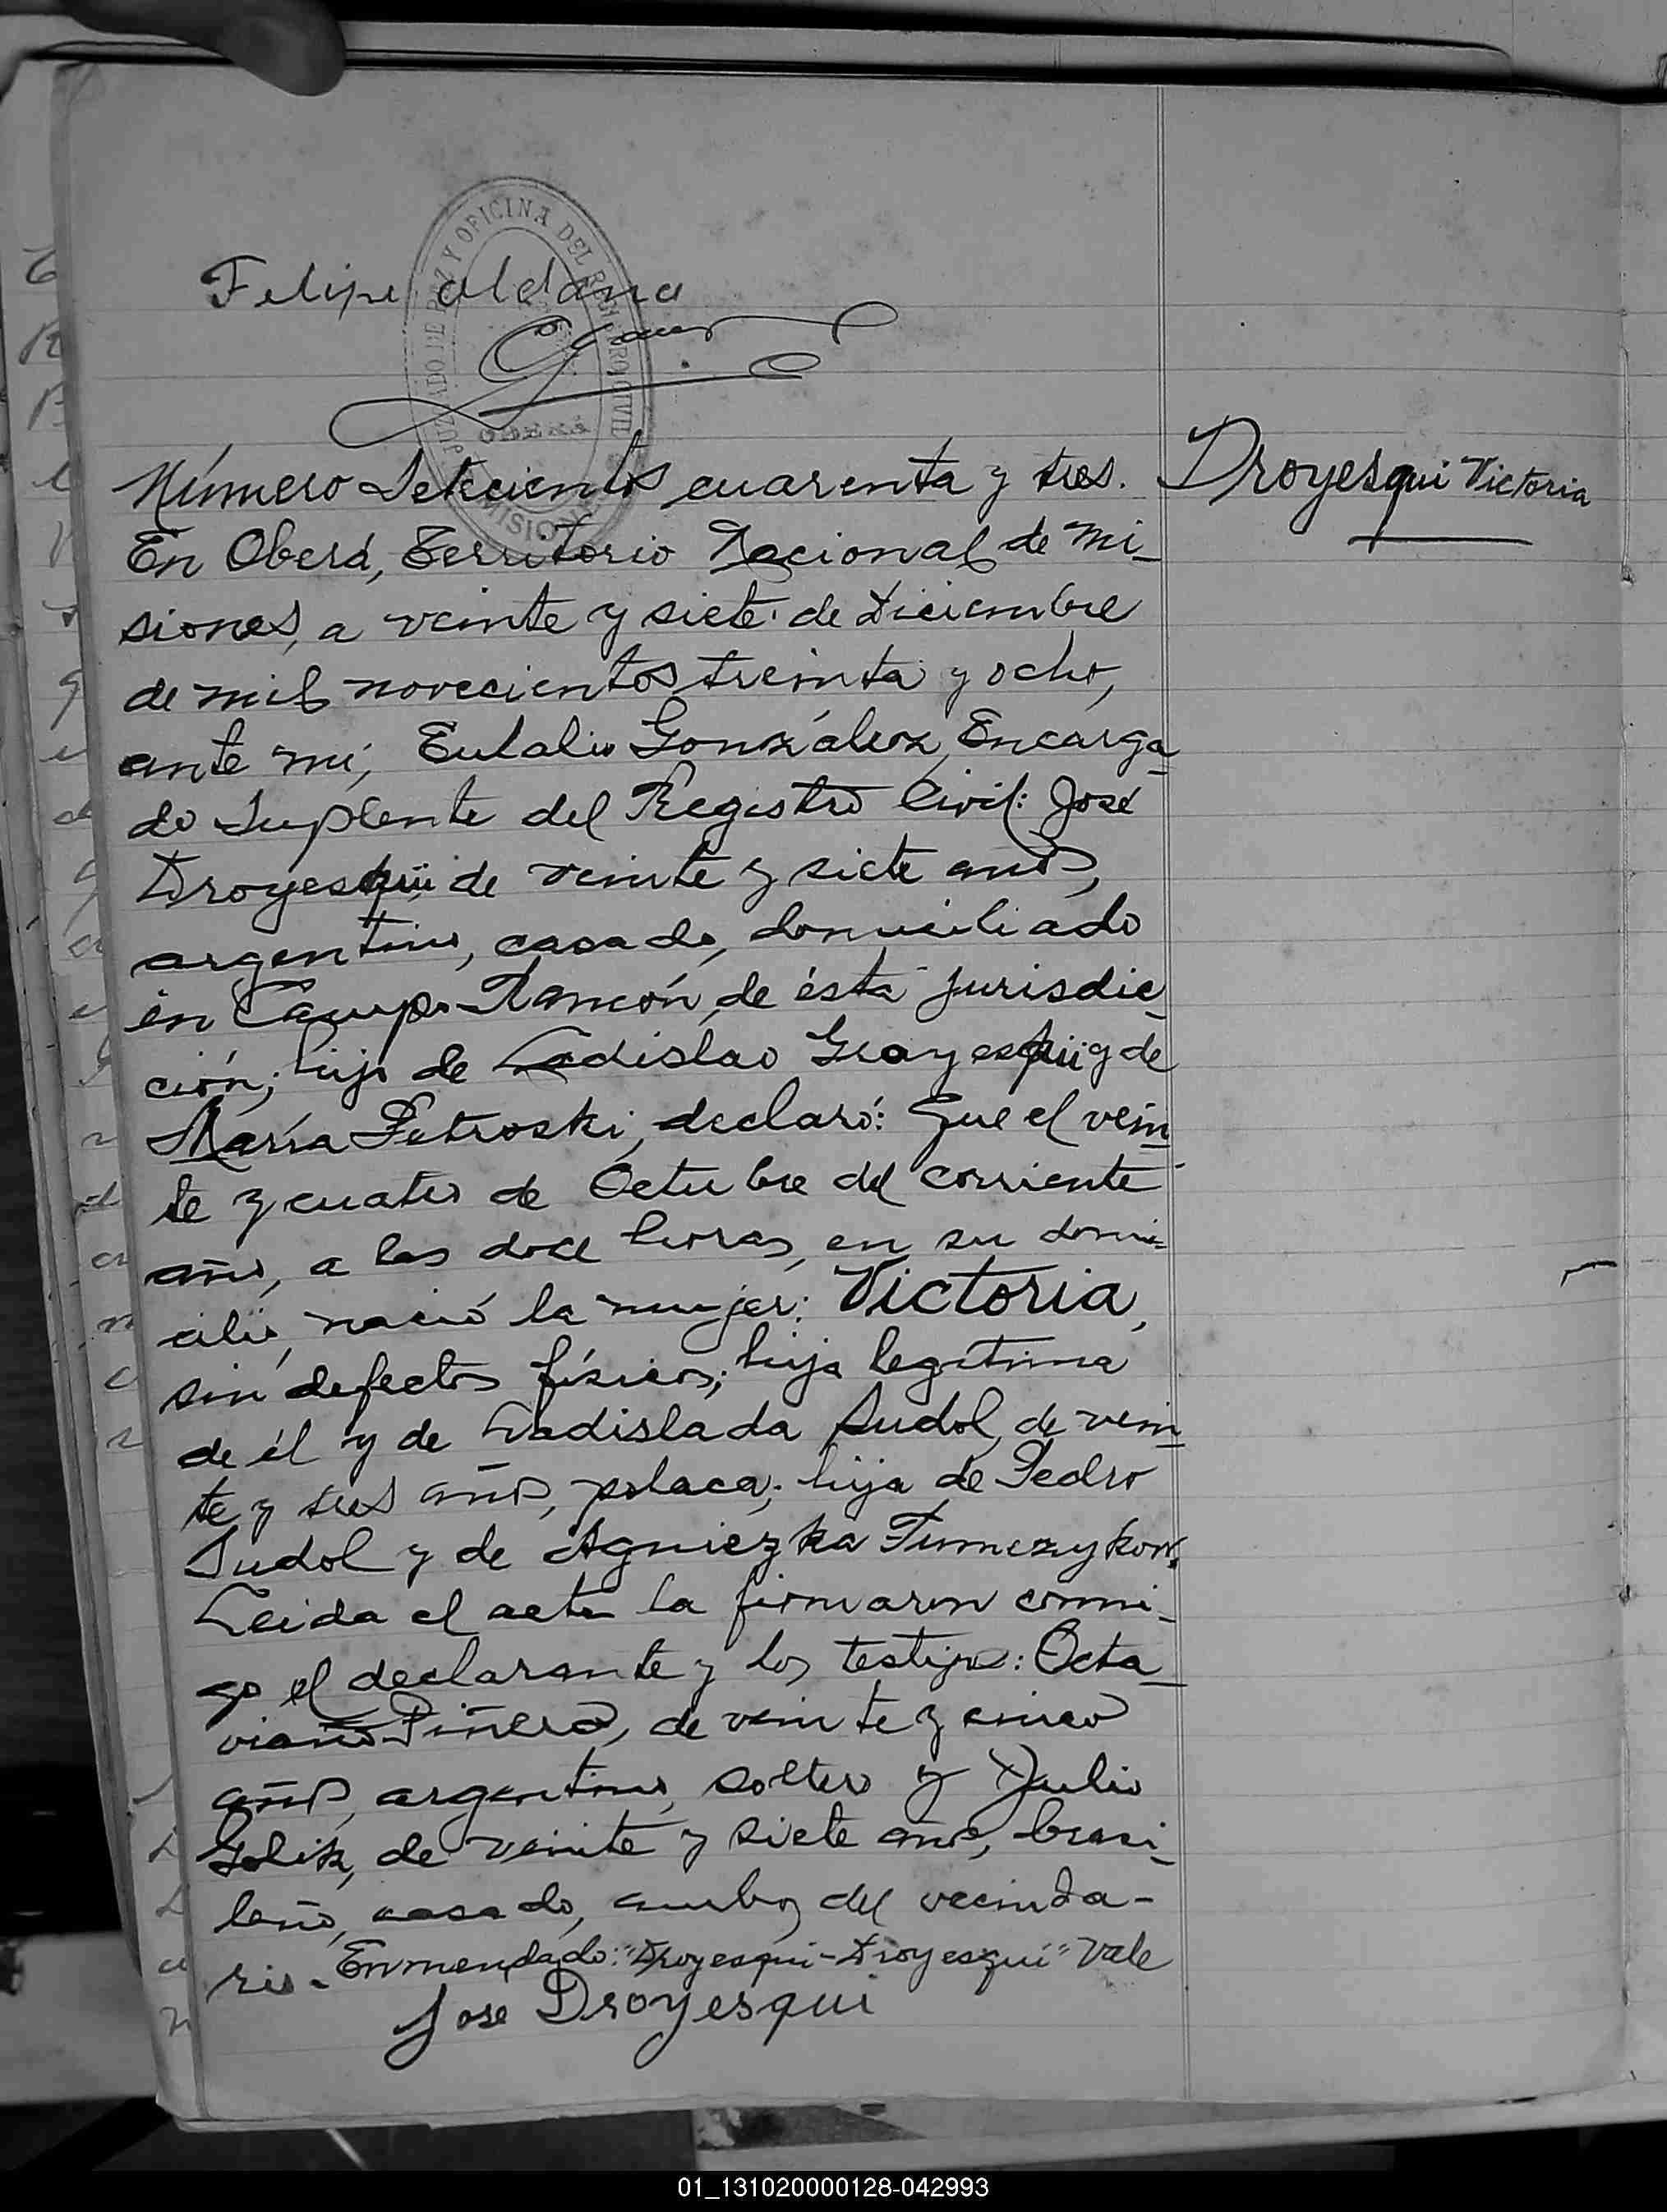 Felipe Aldana
JUZGADO DE PAZ Y OFICINA DEL REGISTRO CIVIL
OBERÁ
MISIONES
Número Setecientos cuarenta y tres.
Droyesqui Victoria
En Oberá, Territorio Nacional de Mi-
siones, a veinte y siete de Diciembre
de mil novecientos treinta y ocho,
ante mí, Eulalio González, Encarga-
do Suplente del Registro Civil: José
Droyesqui, de veinte y siete años,
argentino, casado, domiciliado
en Campo Ramón, de ésta jurisdic-
ción; hijo de Ladislao Groyesqui y de
María Petroski, declaró: Que el vein-
te y cuatro de Octubre del corriente
año, a las doce horas, en su domi-
cilio, nació la mujer: Victoria,
sin defectos físicos; hija legítima
de él y de Ladislada Sudol, de vein-
te y tres años, polaca; hija de Pedro
Sudol y de Agniezka Tumczykow.
Leida el acta la firmaron conmi-
go el declarante y los testigos: Octa-
viano Piñero, de veinte y cinco
años, argentino, soltero y Julio
Golik, de veinte y siete años, brasi-
leño, casado, ambos del vecinda-
rio. Enmendado: "Droyesqui-Droyesqui" Vale
Jose Droyesqui
01_131020000128-042993